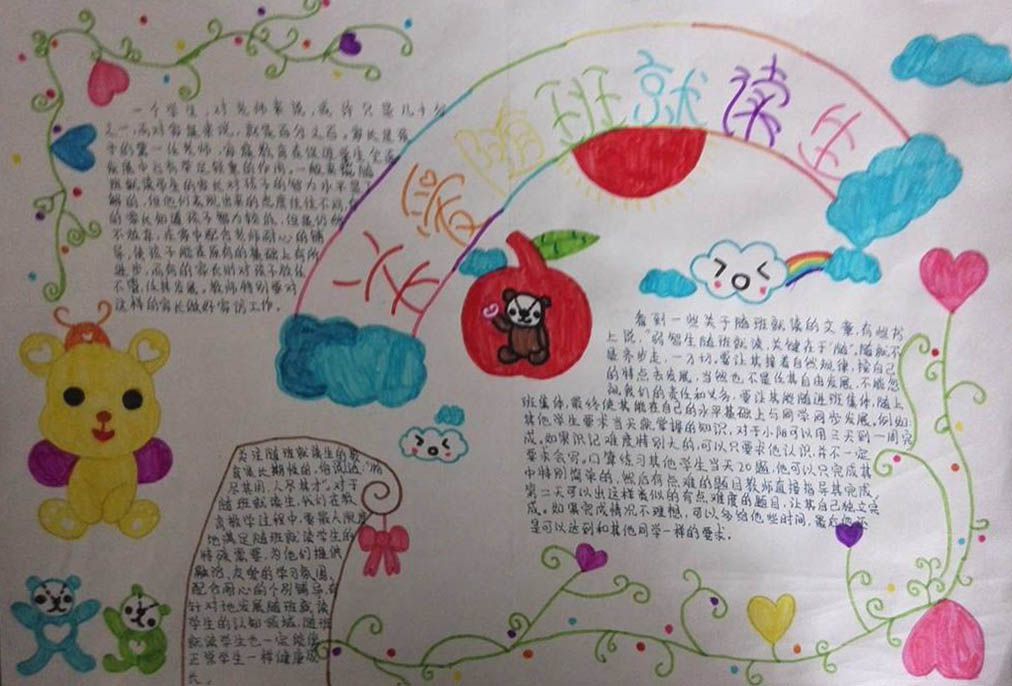 关爱随班就读生
一个学生,对老师来说,或许只是几十分
之一,而对家庭来说,就是百分之百。家长是孩
子的第一任老师,家庭教育在促进学生全面
发展中占有举足轻重的作用。一般来说,随
班就读学生的家长对孩子的智力水平是了
解的,但他们表现出来的态度往往不同,有
的家长知道孩子智力较低,但是仍然
不放弃,在家中配合老师耐心的辅
导,使孩子能在原有的基础上有所
进步,而有的家长则对孩子放任
不管,任其发展。教师特别要对
这样的家长做好家访工作。
看到一些关于随班就读的文章,有些书
上说,“弱智生随班就读,关键在于‘随’,随就不
是齐步走,一刀切。要让其按着自然规律,按自己
的特点去发展,当然也不是任其自由发展,不能忽
视我们的责任和义务,要让其能随进班集体,随上
班集体,最终使其能在自己的水平基础上与同学同步发展。例如
其他学生要求当天就掌握的知识,对于小阳可以用三天到一周完
成。如果识记难度特别大的,可以只要求他认识,并不一定
要求会写。口算练习其他学生当天20题,他可以只完成其
中特别简单的,然后有点难的题目教师直接指导其完成,
第二天可以出这样类似的有点难度的题目,让其自己独立完
成。如果完成情况不理想,可以多给他些时间,最后他还
是可以达到和其他同学一样的要求。
关注随班就读生的教
育是长期性的,俗说述:“物
尽其用,人尽其才”。对于
随班就读生,我们在教
育教学过程中,要最大限度
地满足随班就读学生的
特殊需要,为他们提供
融洽、友爱的学习氛围,
配合耐心的个别辅导,有
针对地发展随班就读
学生的认知领域,随班
就读学生也一定能像
正常学生一样健康成
长。